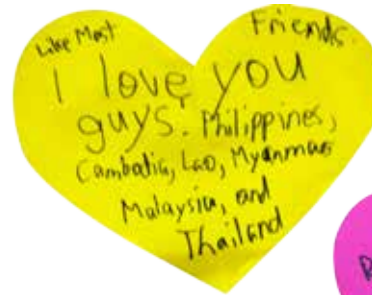 Like Most
Friends.
I love you
guys. Philippines,
Cambatia, Lao, Myanmar
Malaysia, and
Thailand